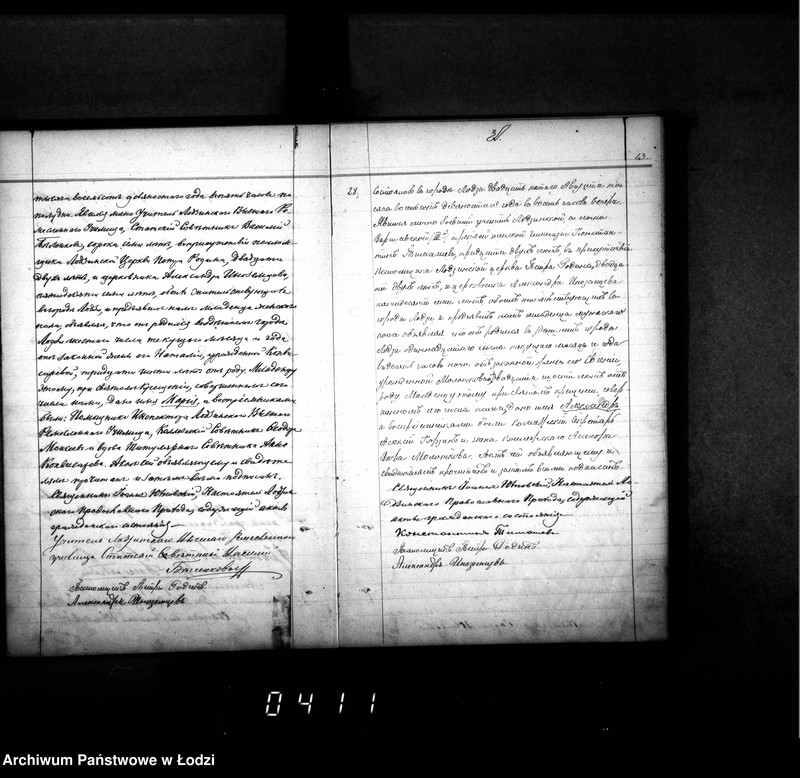 тысяча восемьсотъ девяностаго года въ пять часовъ по
полудни. Явился Учитель Лодзинскаго Высшаго Ре-
месленнаго Училища, Статскій Совѣтникъ Василій
сорока семи лѣтъ, въ присутствіи псалом-
щика Лодзинской Церкви Петра Родина, двадцати
двухъ лѣтъ, и церковника Александра Иноземцова,
пятидесяти семи лѣтъ, обоихъ жительствующихъ
въ городѣ Лодзи, и предъявилъ намъ младенца женскаго
пола, объявляя, что онъ родился въ здѣшнемъ городѣ
Лодзи числа текущаго мѣсяца и года
отъ законной жены его Наталіи, урожденной
тридцати шести лѣтъ отъ роду. Младенцу
этому, при Святомъ Крещеніи, совершенномъ сего
числа нами, дано имя Марія, и воспріемниками
были: Помощникъ Инспектора Лодзинскаго Высшаго
Ремесленнаго Училища, Коллежскій Совѣтникъ Ѳеодоръ
и вдова Титулярнаго Совѣтника Анна
Актъ сей объявляющему и свидѣте-
лямъ прочитанъ и затѣмъ всѣми подписанъ.
Священникъ Іоаннъ Настоятель Лодзин-
скаго Православнаго Прихода, содержащій акты
гражданскаго состоянія
Учитель Лодзинскаго Высшаго Ремесленнаго
училища Статскій Совѣтникъ Василій
Псаломщикъ Петръ Родинъ.
Александръ Иноземцовъ
43.
28.
Состоялось въ городѣ Лодзи двадцать пятаго Августа ты-
сяча восемьсотъ девяностаго года въ восемь часовъ вечера.
Явился лично бывшій учитель Лодзинской, а нынѣ
Варшавской III-й мужской гимназіи Констан-
тинъ тридцати двухъ лѣтъ, въ присутствіи
Псаломщика Лодзинской церкви Петра Родина, двадца-
ти двухъ лѣтъ, и церковника Александра Иноземцева
пятидесяти семи лѣтъ обоихъ жительствующихъ въ
городѣ Лодзи и предъявилъ намъ младенца мужскаго
пола объявляя что онъ родился въ здѣшнемъ городѣ
Лодзи одиннадцатаго числа текущаго мѣсяца и года
въ десять часовъ ночи отъ законной жены его Евгеніи,
урожденной двадцати шести лѣтъ отъ
роду. Младенцу этому при святомъ крещеніи, совер-
шенномъ сего числа нами дано имя Александръ
а воспріемниками были Коллежскій Секретарь
и жена Коллежскаго Ассесора
Вѣра Актъ сей объявляющему и
свидѣтелямъ прочитанъ и затѣмъ всѣми подписанъ.
Священникъ Іоаннъ Настоятель Ло-
дзинскаго Православнаго Прихода, содержащій
акты гражданскаго состоянія
Константинъ
Псаломщикъ Петръ Родинъ.
Александръ Иноземцовъ
0411
Archiwum Państwowe w Łodzi